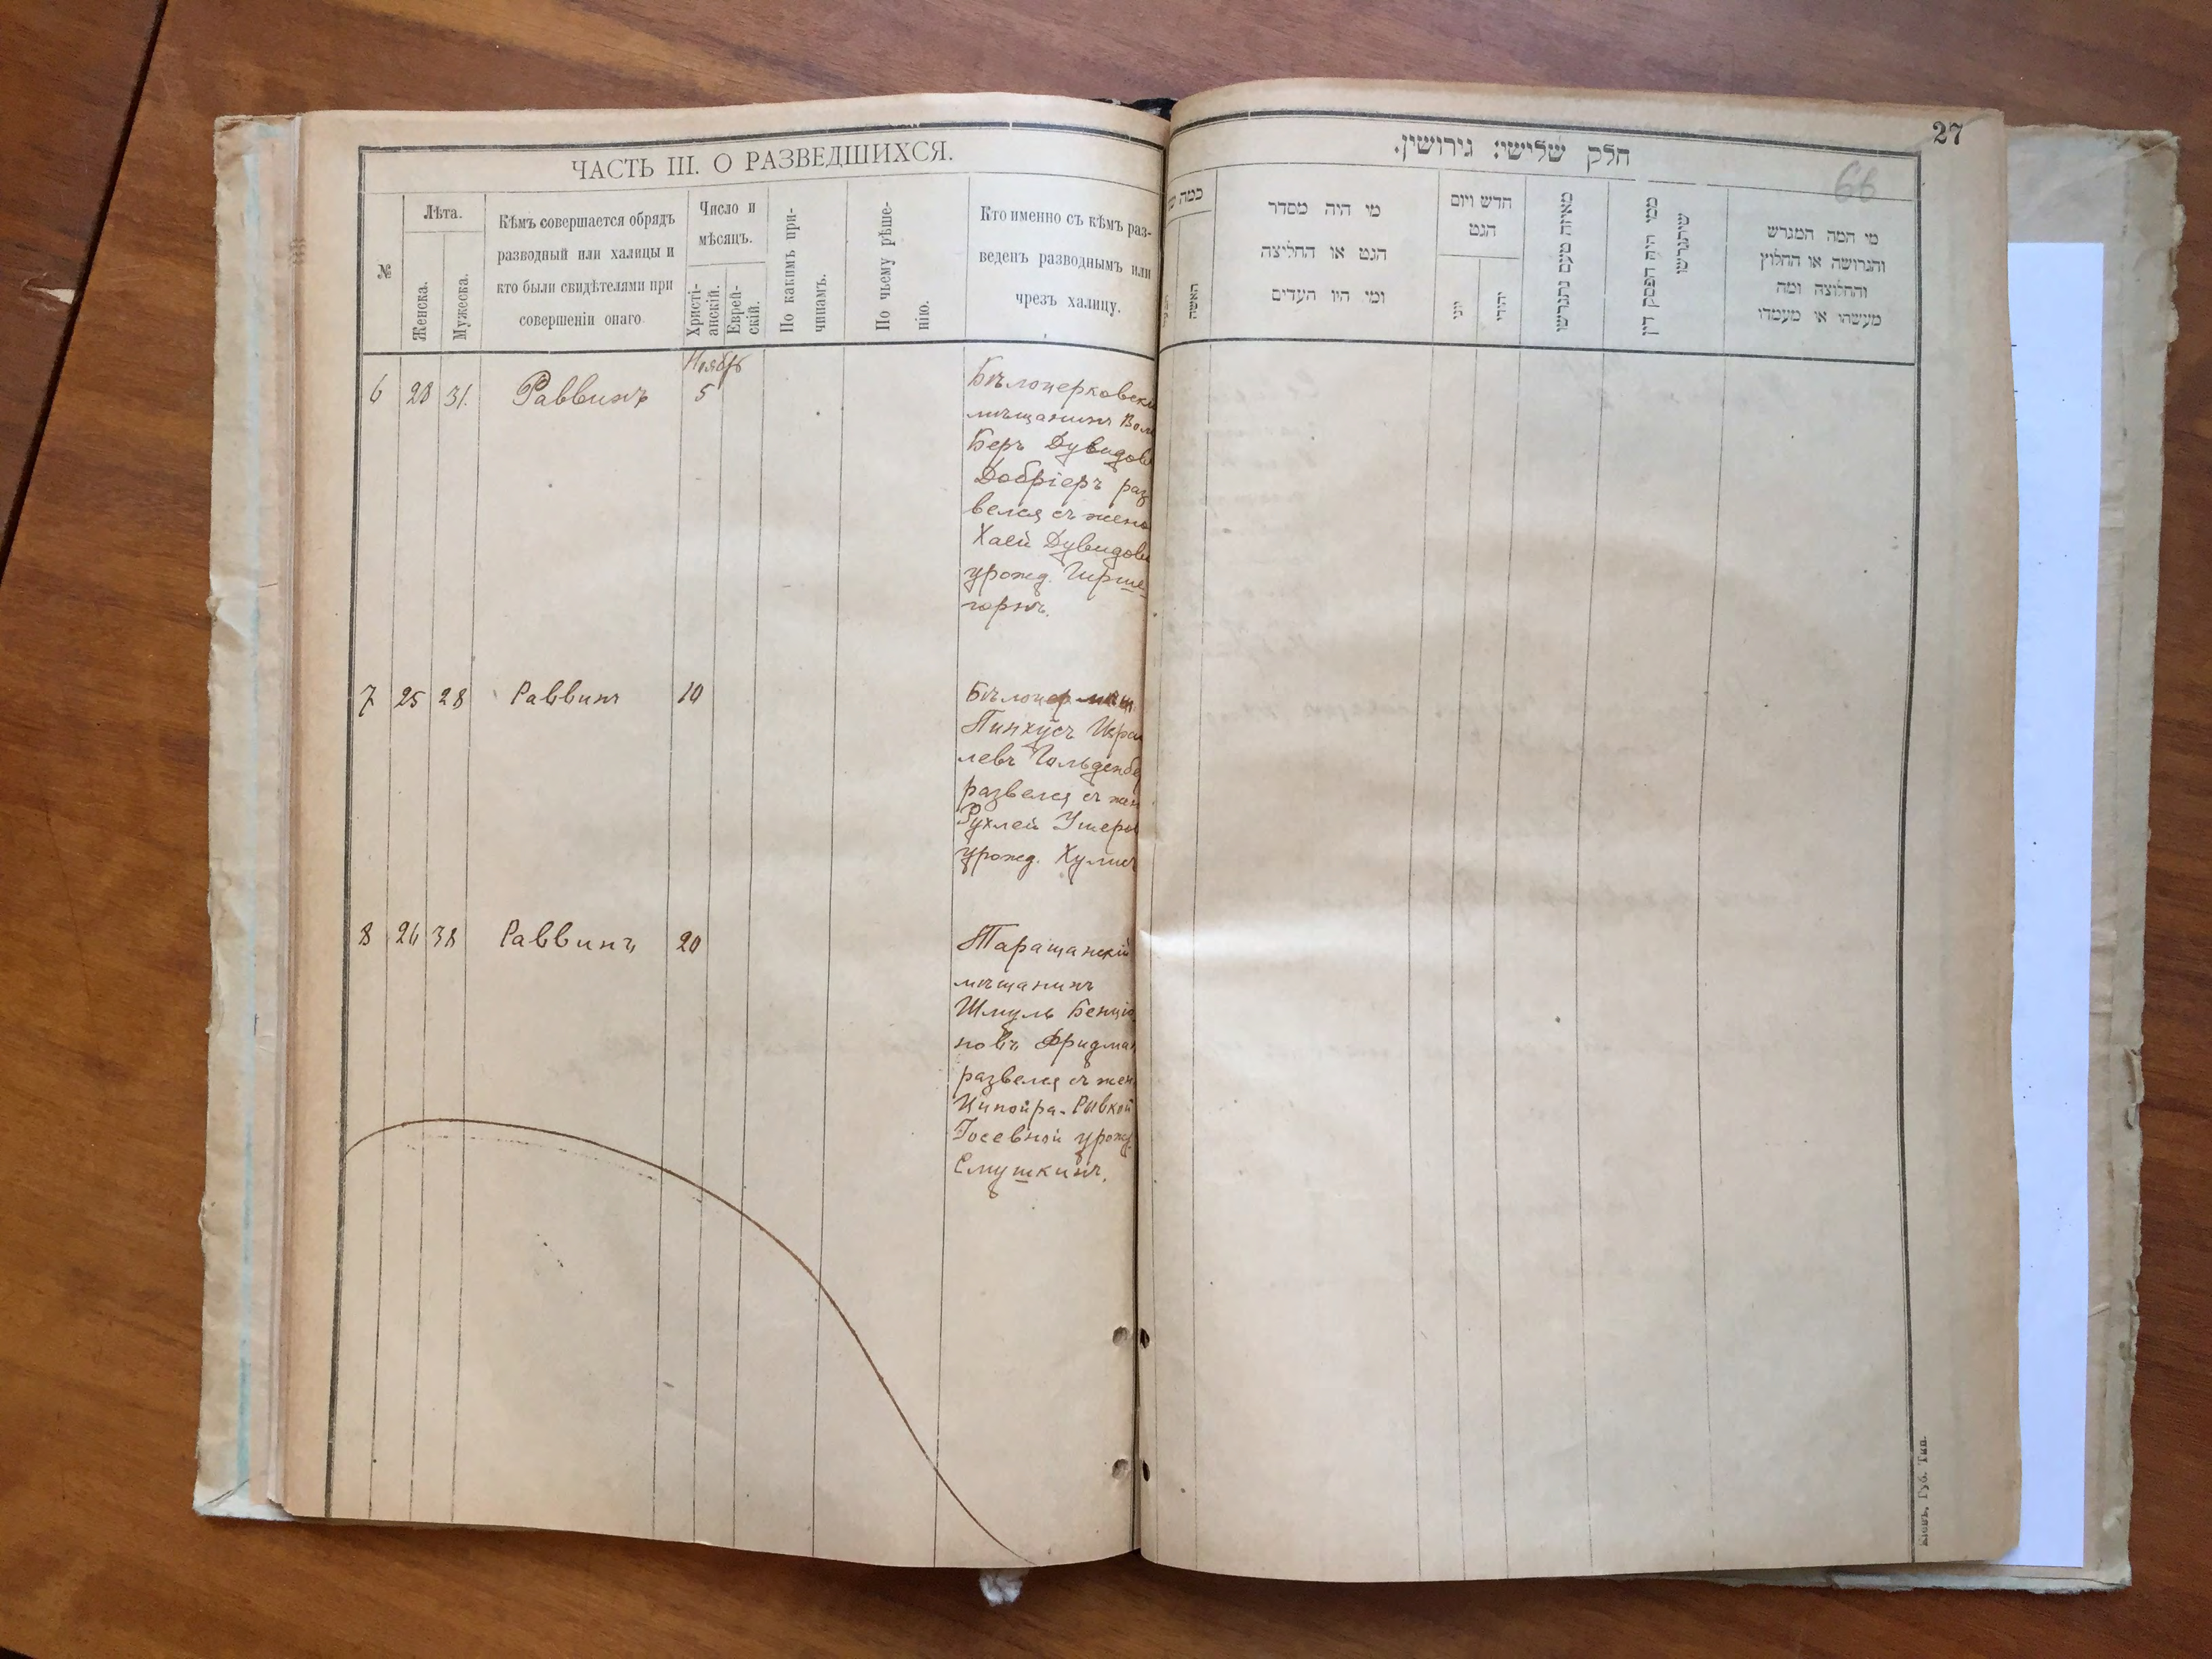 ЧАСТЬ III. О РАЗВЕДШИХСЯ.
№
Лѣта.
Женска.
Мужеска.
Кѣмъ совершается обрядъ
разводный или халицы и
кто были свидѣтелями при
совершеніи онаго.
Число и
мѣсяцъ.
Христі-
анскій.
Еврей-
скій.
По какимъ при-
чинамъ.
По чьему рѣше-
нію.
Кто именно съ кѣмъ раз-
веденъ разводнымъ или
чрезъ халицу.
Ноябрь
6 28 31. Раввинъ 5
Бѣлоцерковскі
мѣщанинъ Вол
Беръ Дувидов
Добріеръ раз
велся съ жено
Хаей Дувидов
урожд. Гирше-
горнъ.
7 25 28 Раввинъ 10
Бѣлоцер мѣщ.
Пинхусъ Изра
левъ Гольденбе
развелся съ жен
Рухлей Ушеро
урожд.
8 26 38 Раввинъ 20
Таращанскій
мѣщанинъ
Шмуль Бенціо
новъ Фридман
развелся съ жен
Ципойра-Ривкой
Іосевной урожд.
Смушкинъ.
27
66
חלק שלישי: גירושין.
כמה
האשה
מי היה מסדר
הגט או החליצה
ומי היו העדים
חדש ויום
הגט
יוני
יהודי
מאיזה טעם נתגרשו
ממי היה הפסק דין
שיתגרשו
מי המה המגרש
והגרושה או החלוץ
והחלוצה ומה
מעשהו או מעמדו
Кіевъ, Губ. Тип.